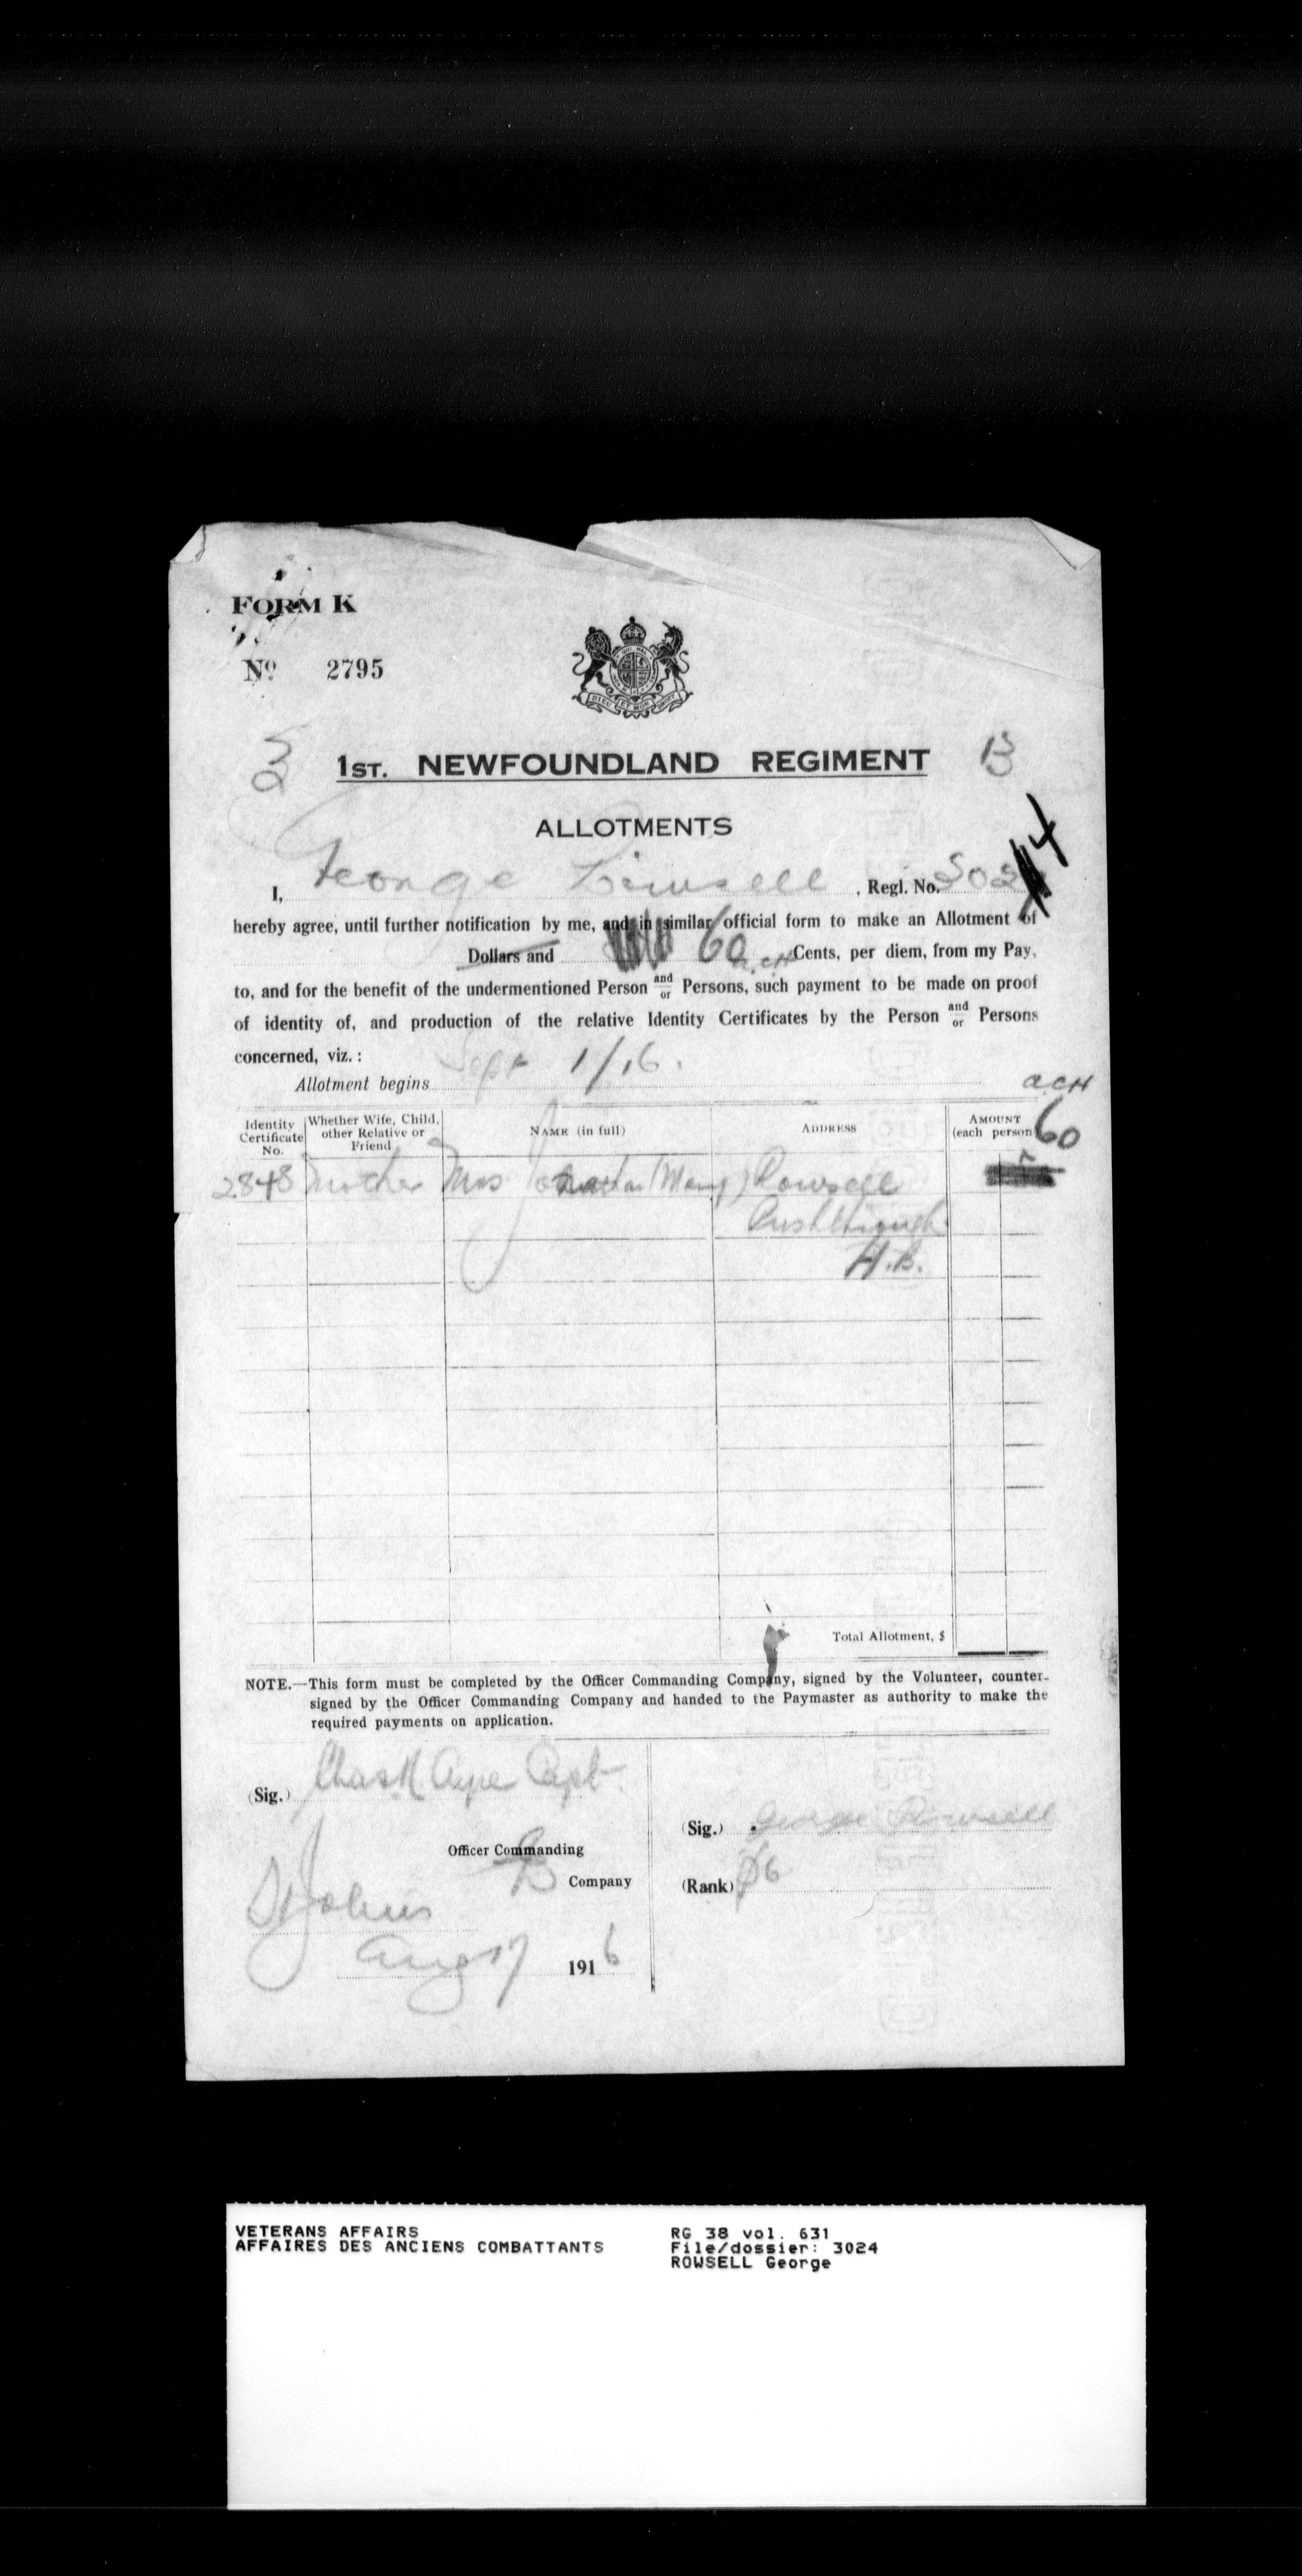 FORM K
Nº 2795
1ST. NEWFOUNDLAND REGIMENT B
ALLOTMENTS
I, George Rowsell, Regl. No. 3024
hereby agree, until further notification by me, and in similar official form to make an Allotment of
Dollars and 60 Cents, per diem, from my Pay,
to, and for the benefit of the undermentioned Person and/or Persons, such payment to be made on proof
of identity of, and production of the relative Identity Certificates by the Person and/or Persons
concerned, viz.:
Allotment begins Sept 1/16.
ACH
Identity Certificate No. Whether Wife, Child, other Relative or Friend NAME (in full) ADDRESS AMOUNT (each person) 60
2848 Mother Mrs Jonathan (Mary) Rowsell
Pushthrough
H.B.
Total Allotment, $
NOTE.—This form must be completed by the Officer Commanding Company, signed by the Volunteer, counter-
signed by the Officer Commanding Company and handed to the Paymaster as authority to make the
required payments on application.
(Sig.) Chas R. Ayre Capt
(Sig.) George Rowsell
Officer Commanding
B Company
(Rank) Pte
St Johns
Aug 17 1916
VETERANS AFFAIRS RG 38 vol. 631
AFFAIRES DES ANCIENS COMBATTANTS File/dossier: 3024
ROWSELL George